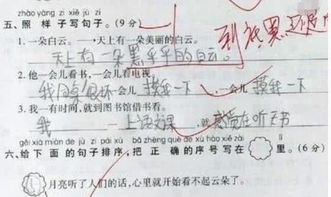 zhào yàng zi xiě jù zi
五、照 样 子 写 句 子。（9 分）
1. 一朵白云。 → 天上有一朵美丽的白云。
天上有一朵黑乎乎的白云。
2. 他一会儿看书，一会儿看电视。
我同桌 一会儿 摸我一下 一会儿 摸我一下
3. 我一有时间，就到图书馆借书看。
我 一 上语文课 就感觉在听天书
到底黑还是
gěi xià miàn de jù zi pái xù bǎ zhèng què de xù hào xiě zài lǐ
六、给 下 面 的 句 子 排 序，把 正 确 的 序 号 写 在 里。（6 分）
月亮听了人们的话，心里就开始看不起云朵了。